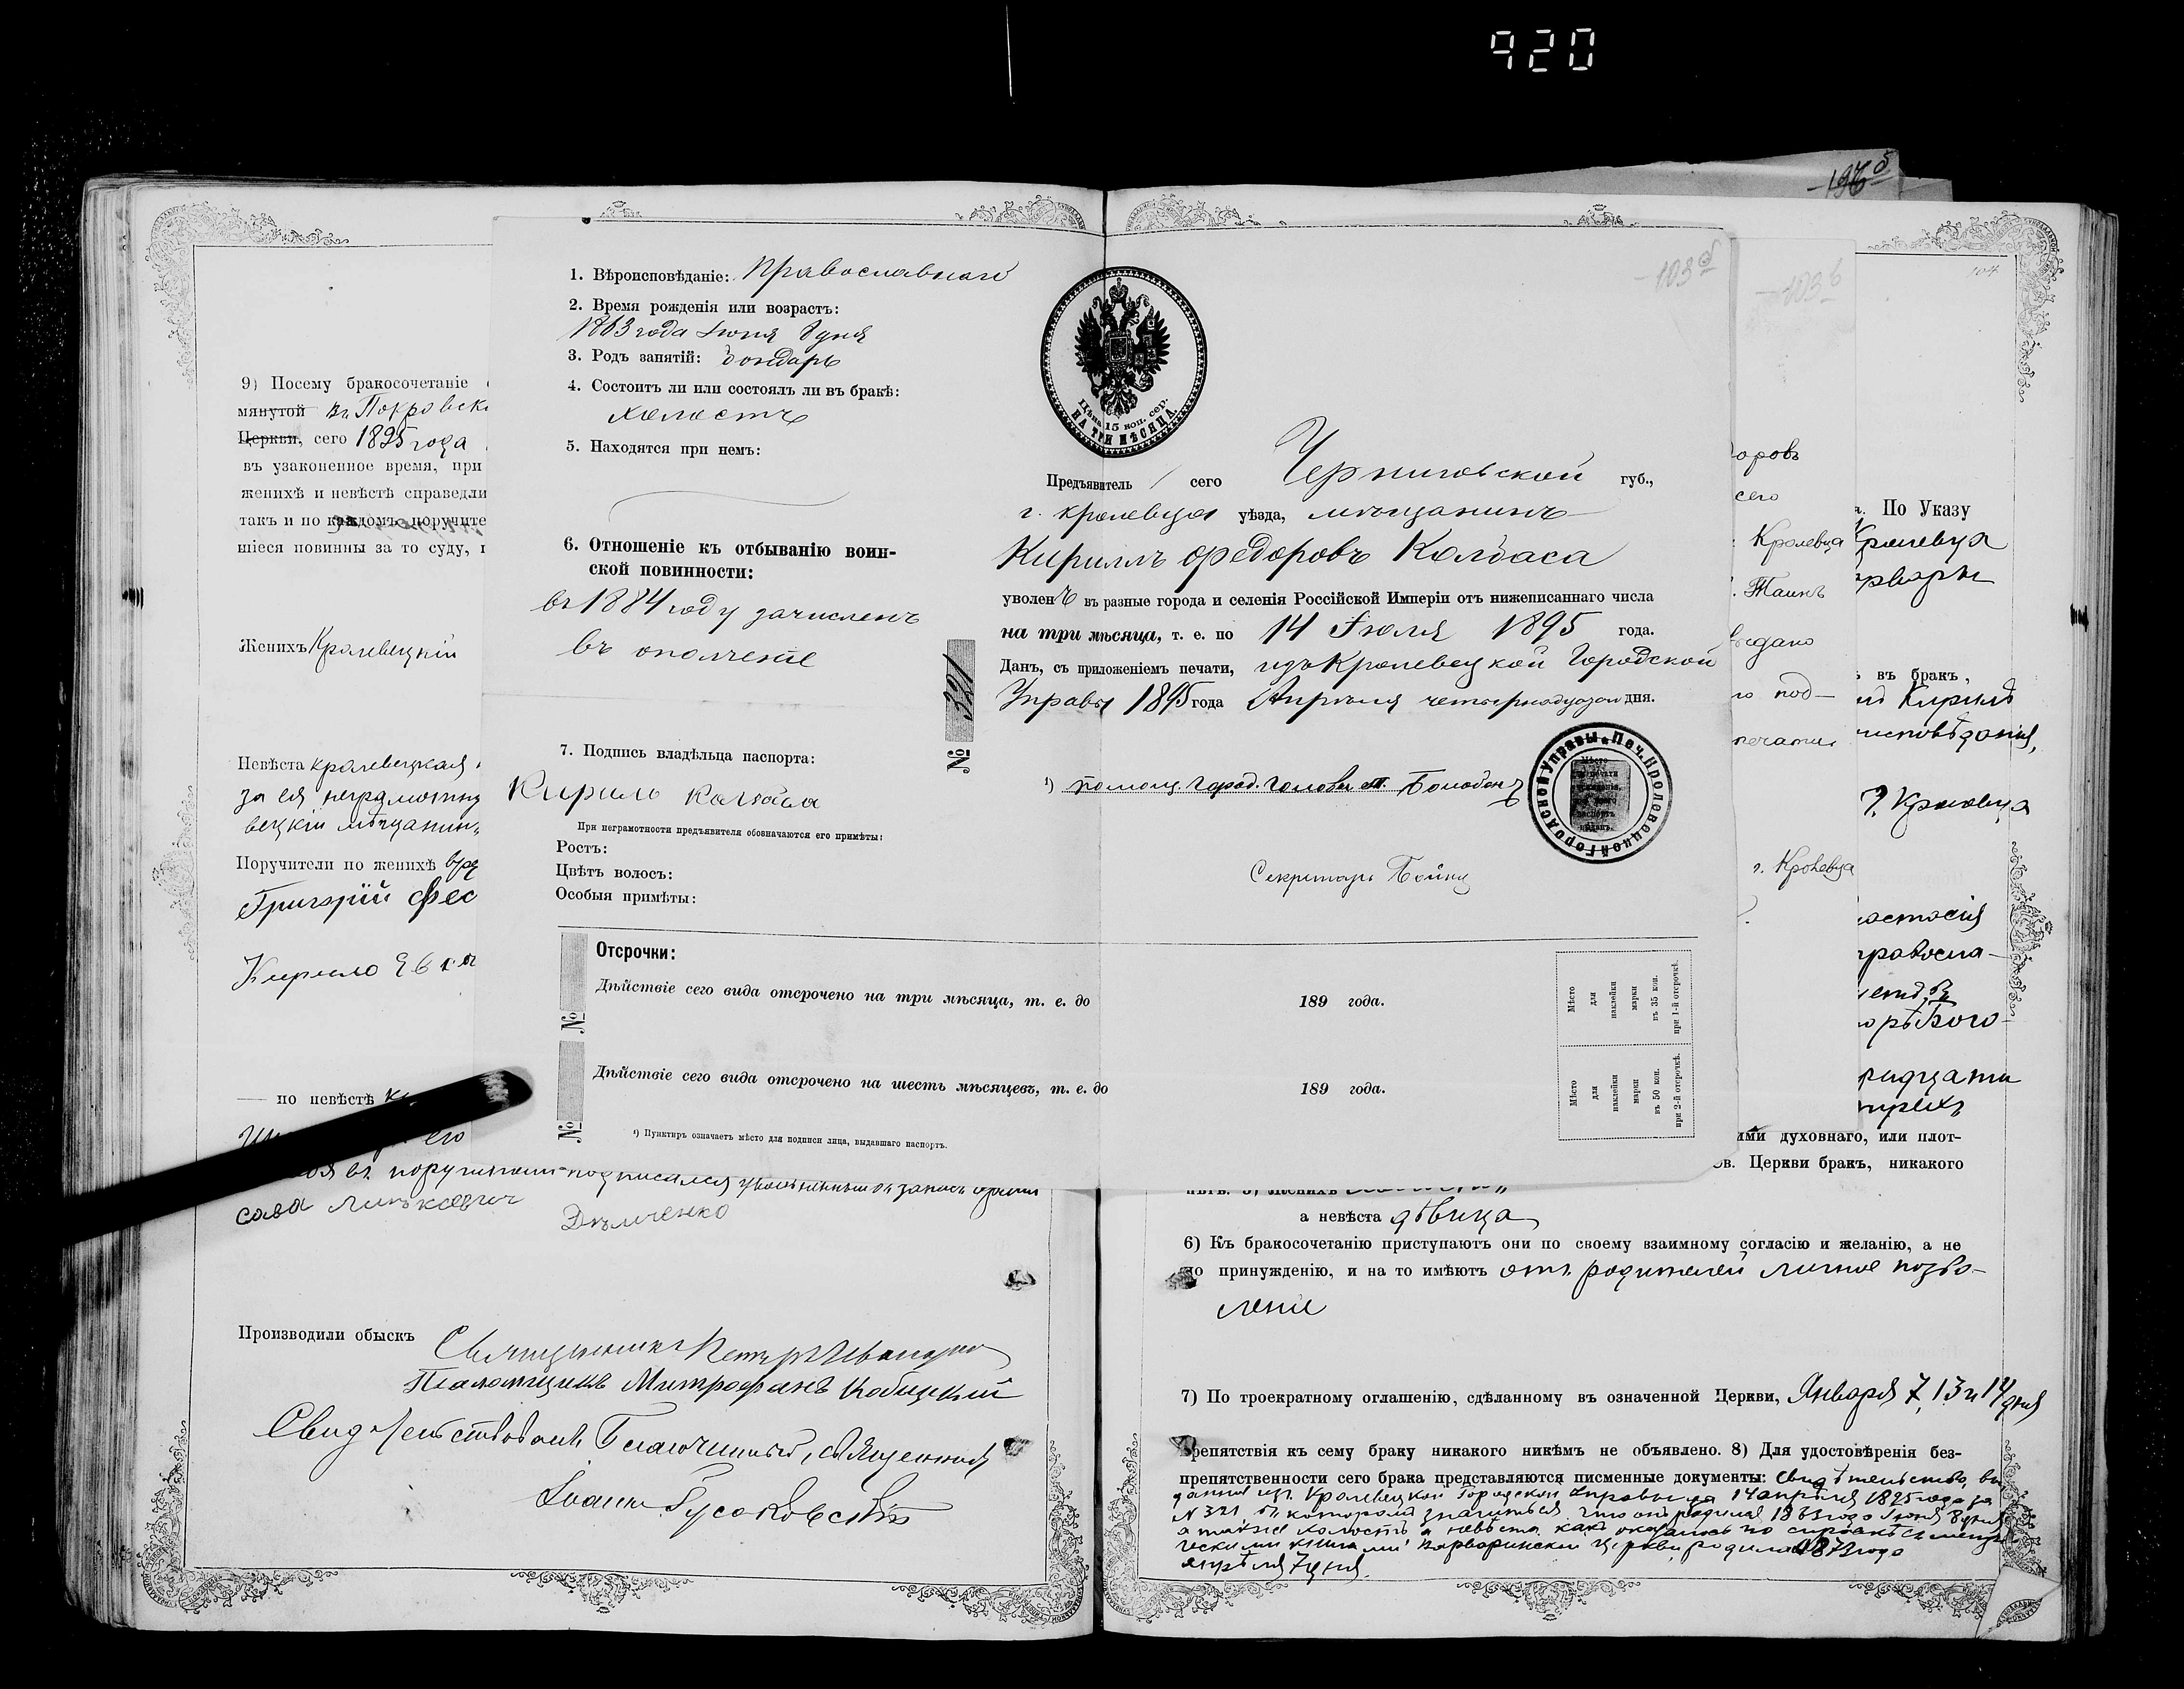 920
196 б
104
103 б
103 а
1. Вѣроисповѣданіе: Православнаго
2. Время рожденія или возрастъ:
1863 года Іюня 8 дня
3. Родъ занятій: бондарь
4. Состоитъ ли или состоялъ ли въ бракѣ:
холостъ
5. Находятся при немъ:
6. Отношеніе къ отбыванію воин-
ской повинности:
въ 1884 году зачисленъ
въ ополченіе
№ 321
7. Подпись владѣльца паспорта:
Кирилъ Колбаса
При неграмотности предъявителя обозначаются его примѣты:
Ростъ:
Цвѣтъ волосъ:
Особыя примѣты:
Цѣна 15 коп. сер.
НА ТРИ МѢСЯЦА.
Предъявитель сего Черниговской губ.,
г. Кролевца уѣзда, мѣщанинъ
Кириллъ Федоровъ Колбаса
уволенъ въ разные города и селенія Россійской Имперіи отъ нижеписаннаго числа
на три мѣсяца, т. е. по 14 Іюля 1895 года.
Данъ, съ приложеніемъ печати, изъ Кролевецкой Городской
Управы 1895 года Апрѣля четырнадцатаго дня.
¹) Помощ. Город. Головы
Печ. Кролевецкой Городской Управы
Мѣсто
для печати
Секретарь
Отсрочки:
№ Дѣйствіе сего вида отсрочено на три мѣсяца, т. е. до 189 года.
Мѣсто для наклейки марки въ 35 коп. при 1-й отсрочкѣ.
№ Дѣйствіе сего вида отсрочено на шесть мѣсяцевъ, т. е. до 189 года.
Мѣсто для наклейки марки въ 50 коп. при 2-й отсрочкѣ.
¹) Пунктиръ означаетъ мѣсто для подписи лица, выдавшаго паспортъ.
9) Посему бракосочетаніе
мянутой въ Покровск
Церкви, сего 1895 года
въ узаконенное время, при
женихѣ и невѣстѣ справедли
такъ и по каждомъ поручите
шіеся повинны за то суду,
Женихъ Кролевецкій
Невѣста кролевецкая
за ея неграмотну
вецкій мѣщанин
Поручители по женихѣ
Григорій Фес
Кирило
— по невѣстѣ
его
подписался
сава
Дѣмченко
Производили обыскъ Священникъ Петръ
Псаломщикъ Митрофанъ Кобицкій
Свидѣтельствовалъ Благочинный, Священникъ
Іоаннъ Гусаковскій
оровъ
сего
Кролевца
выдано
под-
печати
г. Кролевца
По Указу
Кролевца
въ бракъ,
Кирилъ
исповѣданія,
г. Кролевца
астасія
правосла-
ридцати
ими духовнаго, или плот-
ов. Церкви бракъ, никакого
а невѣста дѣвица
6) Къ бракосочетанію приступаютъ они по своему взаимному согласію и желанію, а не
по принужденію, и на то имѣютъ отъ родителей личное позво-
леніе
7) По троекратному оглашенію, сдѣланному въ означенной Церкви, Января 7, 13 и 14 дня
препятствія къ сему браку никакого никѣмъ не объявлено. 8) Для удостовѣренія без-
препятственности сего брака представляются писменные документы: свидѣтельство, вы
данное изъ Кролевецкой Городской Управы за 14 апрѣля 1895 года за
№ 321, въ которомъ значится, что онъ родился 1863 года Іюня 8 дня
а также холостъ а невѣста какъ оказалось по справкѣ съ метри
ческими книгами Варваринской церкви родилась 1873 года
апрѣля 7 дня.